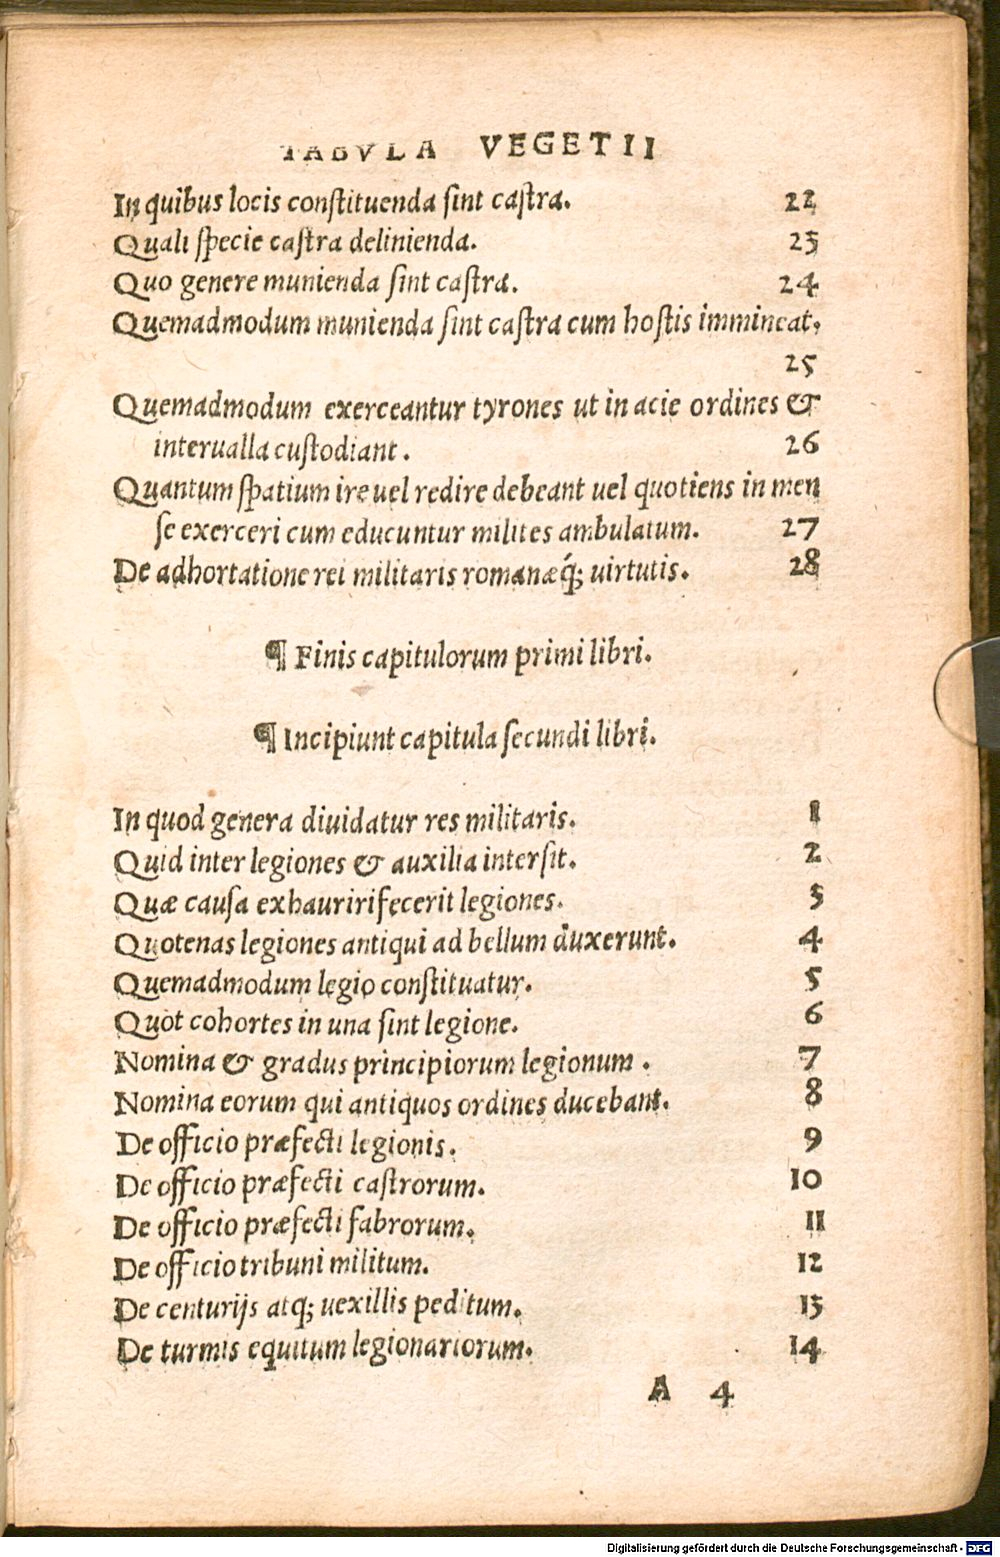 TABVLA VEGETII
In quibus locis constituenda sint castra. 22
Quali specie castra delinienda. 23
Quo genere munienda sint castra. 24
Quemadmodum munienda sint castra cum hostis immineat.
25
Quemadmodum exerceantur tyrones ut in acie ordines &
interualla custodiant. 26
Quantum spatium ire uel redire debeant uel quotiens in men
se exerceri cum educuntur milites ambulatum. 27
De adhortatione rei militaris romanæq́; uirtutis. 28
¶ Finis capitulorum primi libri.
¶ Incipiunt capitula secundi libri.
In quod genera diuidatur res militaris. 1
Quid inter legiones & auxilia intersit. 2
Quæ causa exhauriri fecerit legiones. 3
Quotenas legiones antiqui ad bellum duxerunt. 4
Quemadmodum legio constituatur. 5
Quot cohortes in una sint legione. 6
Nomina & gradus principiorum legionum. 7
Nomina eorum qui antiquos ordines ducebant. 8
De officio præfecti legionis. 9
De officio præfecti castrorum. 10
De officio præfecti fabrorum. 11
De officio tribuni militum. 12
De centurijs atq; uexillis peditum. 13
De turmis equitum legionariorum. 14
A 4
Digitalisierung gefördert durch die Deutsche Forschungsgemeinschaft - DFG